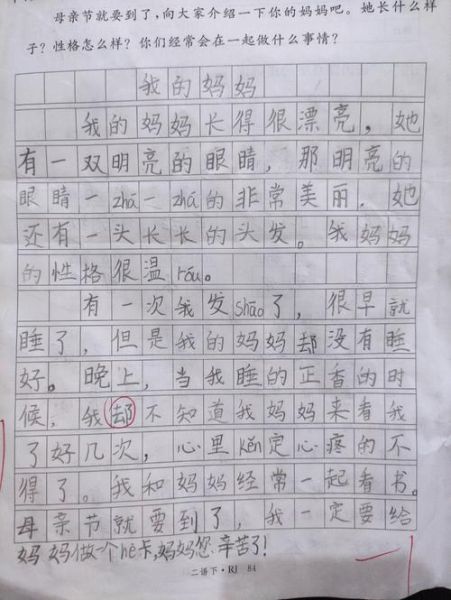 母亲节就要到了，向大家介绍一下你的妈妈吧。她长什么样
子？性格怎么样？你们经常会在一起做什么事情？
我的妈妈
我的妈妈长得很漂亮，她
有一双明亮的眼睛，那明亮的
眼睛一zhá一zhá的非常美丽．她
还有一头长长的头发。我妈妈
的性格很温róu。
有一次我发shāo了，很早就
睡了，但是我的妈妈却没有睡
好。晚上，当我睡的正香的时
候，我却不知道我妈妈来看我
了好几次，心里kěn定心疼的不
得了。我和妈妈经常一起看书。
母亲节就要到了，我一定要给
妈妈做一个hè卡，妈妈您辛苦了！
二语下·RJ 84